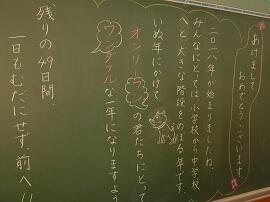 あけまして
おめでとうございます
二〇一八年が始まりましたね。
みんなにとっては小学校から中学校
へと大きな階段をのぼる年です。
いぬ年にかけて
オンリーワンの君たちにとって
ワンダフルな一年になりますよう
残りの49日間
一日もむだにせず、前へ